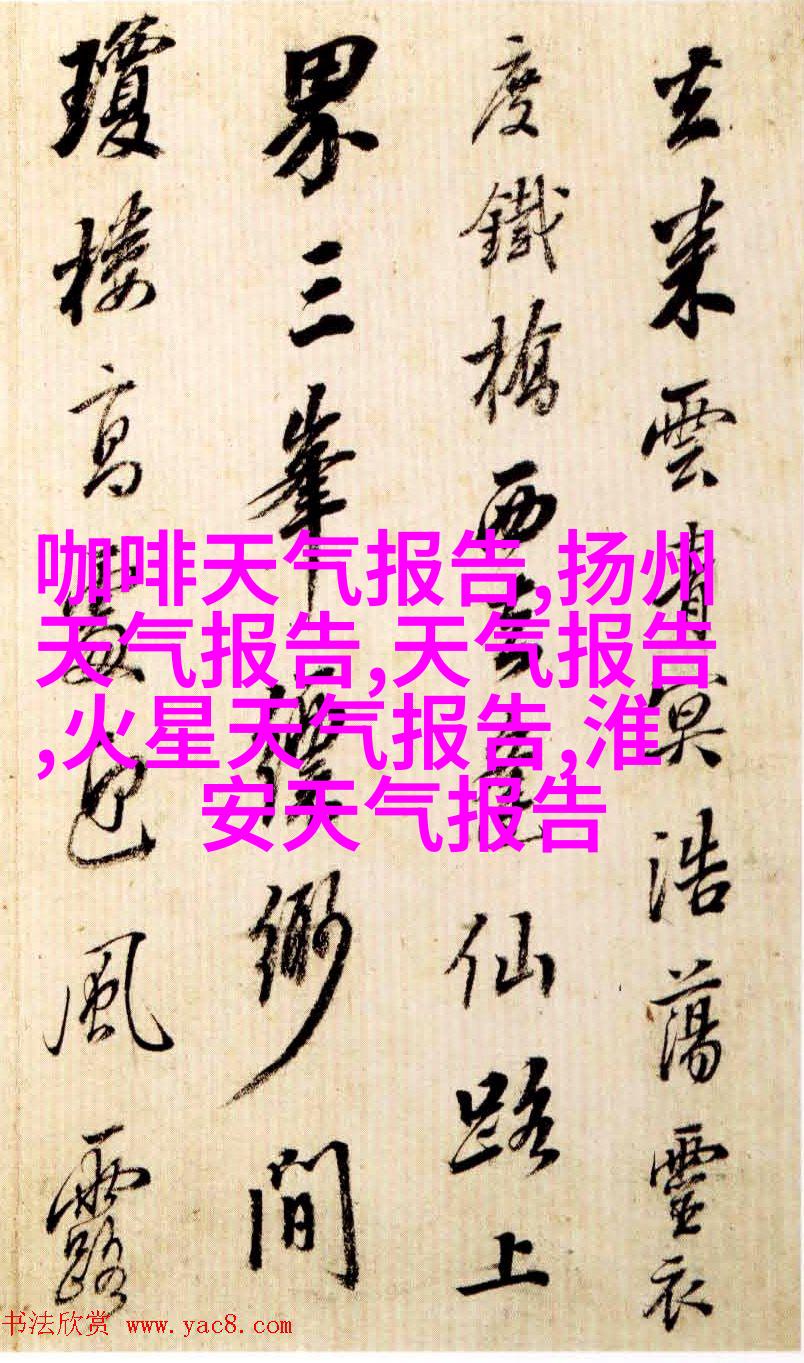 去来雲青冥浩蕩靈衣
度鐵橋西仙路上
界三峯縹緲間
瓊樓高處風露
咖啡天气报告,扬州
天气报告,天气报告
,火星天气报告,淮
安天气报告
书法欣赏 www.yac8.com